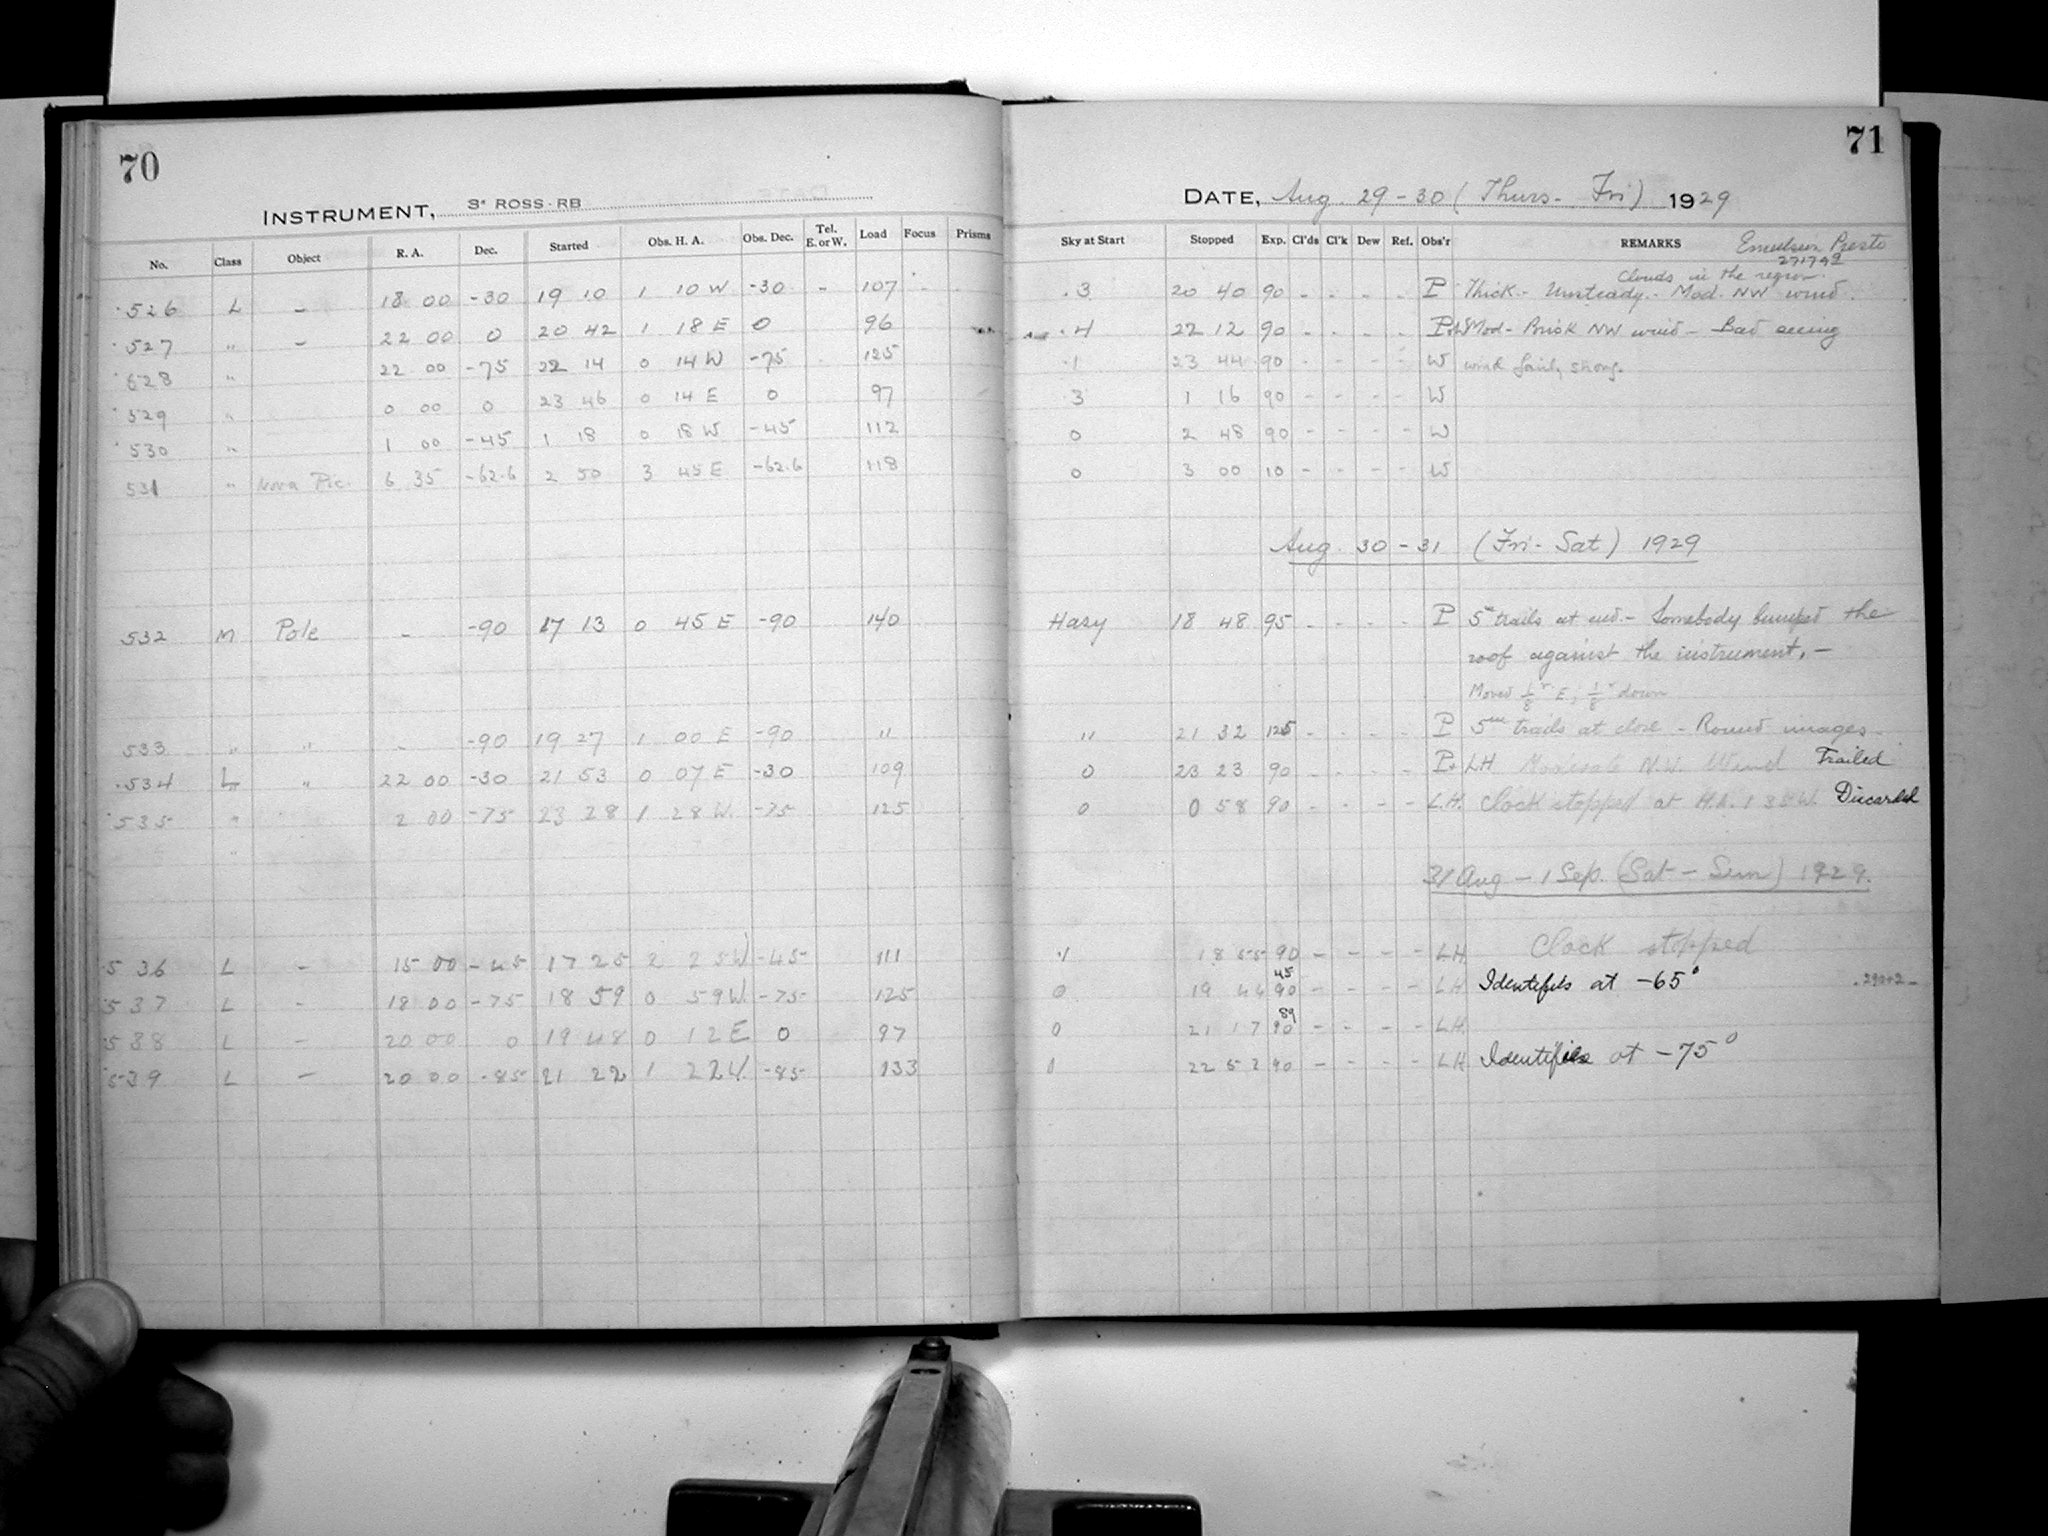 70
INSTRUMENT, 3" ROSS-RB
No. Class Object R. A. Dec. Started Obs. H. A. Obs. Dec. Tel. E. or W. Load Focus Prisms
526 L – 18 00 -30 19 10 1 10 W -30 - 107 - -
527 " – 22 00 0 20 42 1 18 E 0 96
528 " 22 00 -75 22 14 0 14 W -75 125
529 " 0 00 0 23 46 0 14 E 0 97
530 " 1 00 -45 1 18 0 18 W -45 112
531 " Nova Pic. 6 35 -62.6 2 50 3 45 E -62.6 118
532 M Pole – -90 17 13 0 45 E -90 140
533 " " - -90 19 27 1 00 E -90 "
534 L " 22 00 -30 21 53 0 07 E -30 109
535 " 2 00 -75 23 28 1 28 W. -75 125
536 L – 15 00 -45 17 25 2 25 W -45 111
537 L - 18 00 -75 18 59 0 59 W. -75 125
538 L – 20 00 0 19 48 0 12 E 0 97
539 L – 20 00 -85 21 22 1 22 W. -85 133
71
DATE, Aug. 29-30 (Thurs- Fri) 1929
Sky at Start Stopped Exp. Cl'ds Cl'k Dew Ref. Obs'r REMARKS Emulsion Presto
Clouds in the region.
.3 20 40 90 - - - - P Thick - Unsteady - Mod. NW wind.
.4 22 12 90 - - - - Mod - Brisk NW wind - Bad seeing
.1 23 44 90 - - - - W wind fairly strong.
.3 1 16 90 - - - - W
0 2 48 90 - - - - W
0 3 00 10 - - - - W
Aug. 30 - 31 (Fri - Sat) 1929
Hazy 18 48 95 - - - - P 5m trails at end - Somebody bumped the
roof against the instrument. –
Moved 1/8" E, 1/8" down
" 21 32 125 - - - - P 5m trails at close - Round images
0 23 23 90 - - - - P+ LH Moderate N.W. Wind Trailed
0 0 58 90 - - - - L.H. Clock stopped at H.A. 1 35 W. Discarded
31 Aug – 1 Sep. (Sat – Sun) 1929.
.1 18 55 90 – - - - LH Clock stopped
45
0 19 44 90 - - - - LH Identifies at -65°
89
0 21 17 90 – - – - L.H.
0 22 52 90 – - – - LH Identifies at -75°